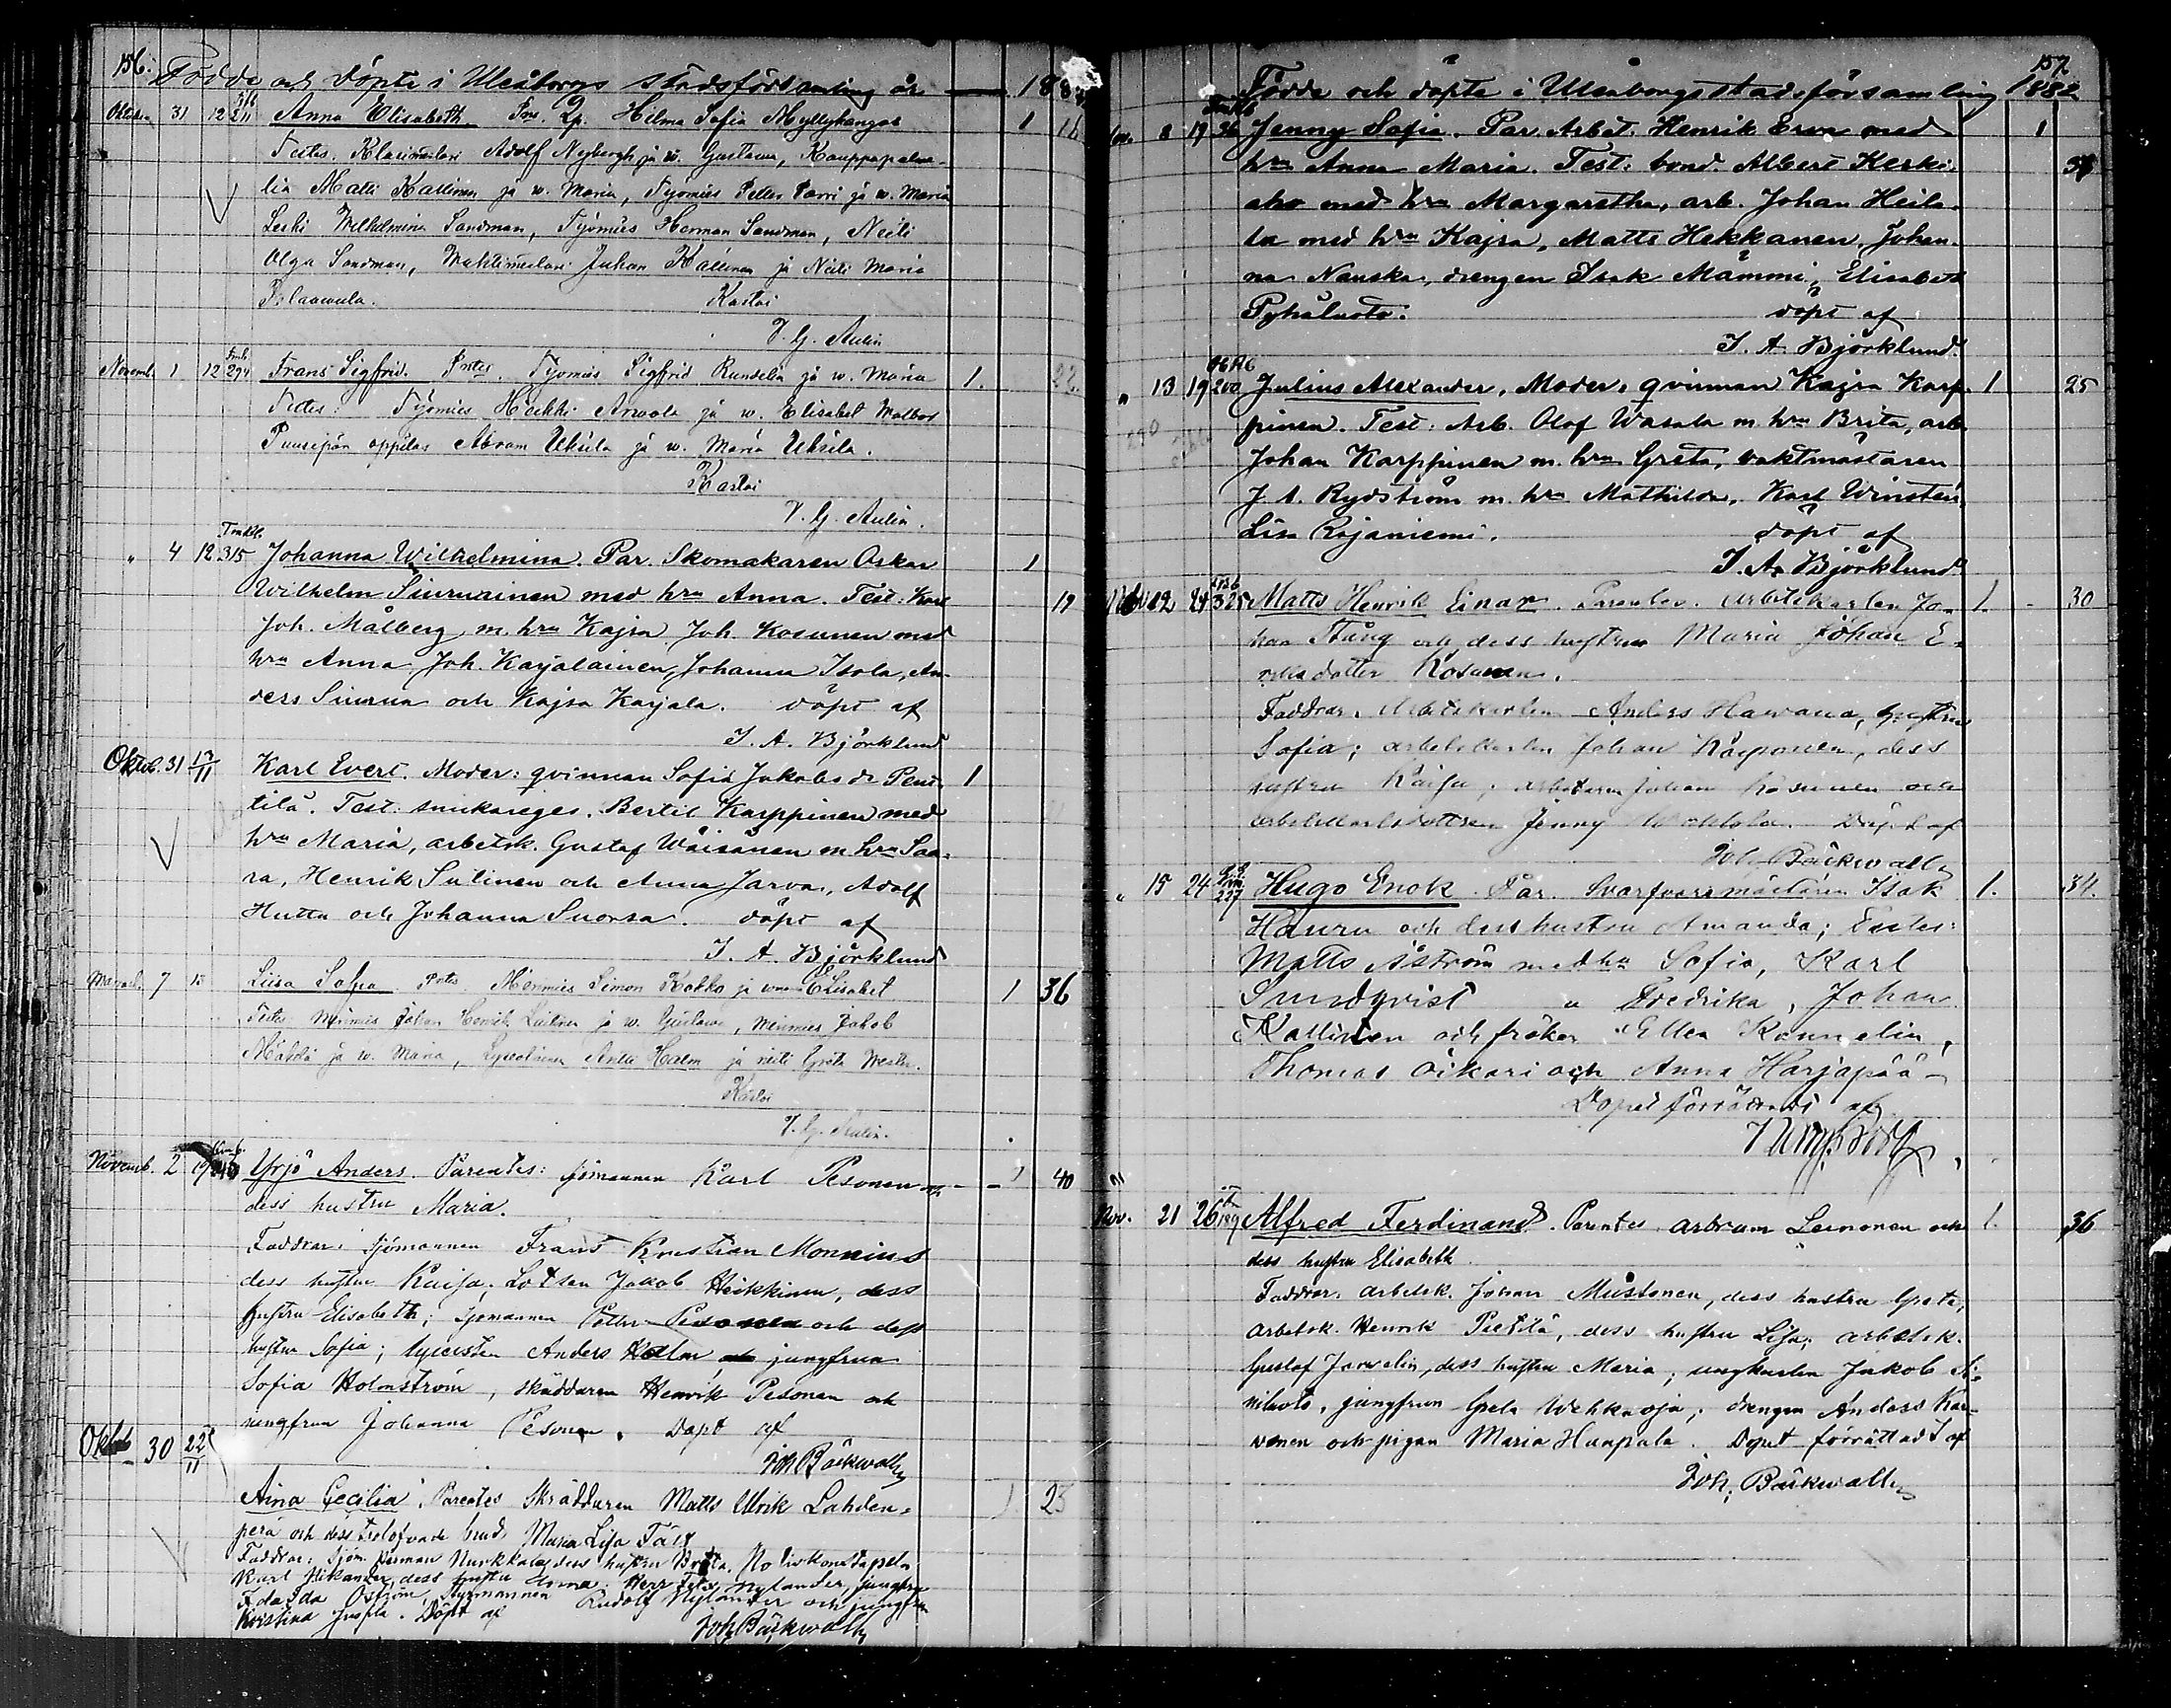 156.
Födde och döpte i Uleåborgs stadsförsamling år 1882
Oktober 31 12 211 Anna Elisabeth. Hilma Sofia Myllykangas 1 16
Testes. Adolf Nyberg ja w. Gustawa, Kauppapalwe-
lia Matti Kallinen ja w. Maria, Työmies Petter Parri ja w. Maria
Leski Wilhelmina Sandman, Työmies Herman Sandman, Neiti
Olga Sandman, Juhan Kallinen ja Neiti Maria
Kastoi
V. G. Aulin
Novemb. 1 12 294 Frans Sigfrid. Työmies Sigfrid Rundelin ja w. Maria 1. 22.
Testes: Työmies Heikki Arwola ja w. Elisabet
Puusepän oppilas Abram Uksila ja w. Maria Uksila.
Kastoi
V. G. Aulin.
" 4 12 315 Johanna Wilhelmina. Par. Skomakaren Oskar 1
Wilhelm Siuruainen med hru Anna. Test: Karl 19
Joh. Målberg m. hru Kajsa Joh. Kosunen med
hru Anna Joh. Karjalainen, Johanna Isola, An-
ders Siurua och Kajsa Karjala. döpt af
J. A. Björklund
Oktob. 31 17/11 Karl Evert. Moder: qvinnan Sofia Jakobs dr Pent- 1
tilä. Test: snikareges. Bertil Karppinen med
hru Maria, arbetsk. Gustaf Wäisänen m. hru Saa-
ra, Henrik Sulinen och Anna Jarva, Adolf
Hutta och Johanna Suorsa. döpt af
J. A. Björklund
7 Liisa Sofia. Merimies Simon Kokko ja Elisabet 1 36
Testes Merimies Johan Henrik ja w. Gustawa, Merimies Jakob
ja w. Maria, Antti Halm ja neiti Greta
Kastoi
V. G. Aulin.
Novemb. 2 19 Yrjö Anders. Parentes: sjömannen Karl Pesonen och 1 40
dess hustru Maria.
Faddrar: Sjömannen Frans Kristian Monnius
dess hustru Kaisa; Lotsen Jakob Heikkinen, dess
hustru Elisabeth; sjömannen Petter Pesonen och dess
hustru Sofia; Anders Halm jungfrun
Sofia Holmström, skräddaren Henrik Pesonen och
jungfrun Johanna Pesonen. Döpt af
Joh. Bäckwall
Oktob 30 22/11
Aina Cecilia. Parentes Skräddaren Matts Ulrik Lahden- 1 25
perä och dess trolofvade brud Maria Lisa
Faddrar: Sjöm. Herman Nurkkala dess hustru Brita.
Karl Nikander, dess hustru Anna. Herr Nylander, jungfru
Ida Öström, Styrmannen Rudolf Nylander och jungfru
Kristina. Döpt af
Joh. Bäckwall
157
Födde och döpte i Uleåborgs stadsförsamling 1882
Nov. 8 19 36 Jenny Sofia. Par. Arbet. Henrik Erwa med 1
hru Anna Maria. Test: bond. Albert Keski-
aho med hru Margaretha, arb. Johan Heila-
la med hru Kajsa, Matts Hekkanen, Johan-
na Nauska, drengen Isak Mämmi, Elisabet
Pyhäluoto. döpt af
J. A. Björklund.
" 13 19 200 Julius Alexander, Moder, qvinnan Kajsa Karp- 1 25
pinen. Test: Arb. Olof Wasala m. hru Brita, arb.
Johan Karppinen m. hru Greta, vaktmästaren
J. A. Rydström m. hru Mathilda, Karl Winsten,
Lisa Rajaniemi. döpt af
J. A. Björklund.
Nov 12 24 325 Matts Henrik Einar. Parentes. arbetskarlen Jo- 1 - 30
han Stång och dess hustru Maria Johan E-
riksdotter Kosunen.
Faddrar. Arbetskarlen Anders Hawana, hustru
Sofia; arbetskarlen Johan Karponen, dess
hustru Kaisa; arbetaren Johan Kosunen och
arbetskarlsdottren Jenny. Döpt af
Joh. Bäckwall
" 15 24 227 Hugo Enok. Par. Svarfvaremästaren Isak 1. 34.
Hauru och dess hustru Amanda; Testes:
Matts Åström med hu Sofia, Karl
Sundqvist " Fredrika, Johan
Kallinen och fröken Ellen Rönnelin,
Thomas Oikari och Anna Harjapää -
Dopet förrättadt af
Nov. 21 26 189 Alfred Ferdinand. Parentes Abram Leinonen och 1. 36
dess hustru Elisabeth
Faddrar. arbetsk. Johan Mustonen, dess hustru Greta,
arbetsk. Henrik Pietilä, dess hustru Lisa; arbetsk.
Gustaf Jarwelin, dess hustru Maria; ungkarlen Jakob Si-
niluoto, jungfrun Greta Wehkaoja; drengen Anders Kar-
vonen och pigan Maria Haapala. Dopet förrättadt af
Joh. Bäckwall